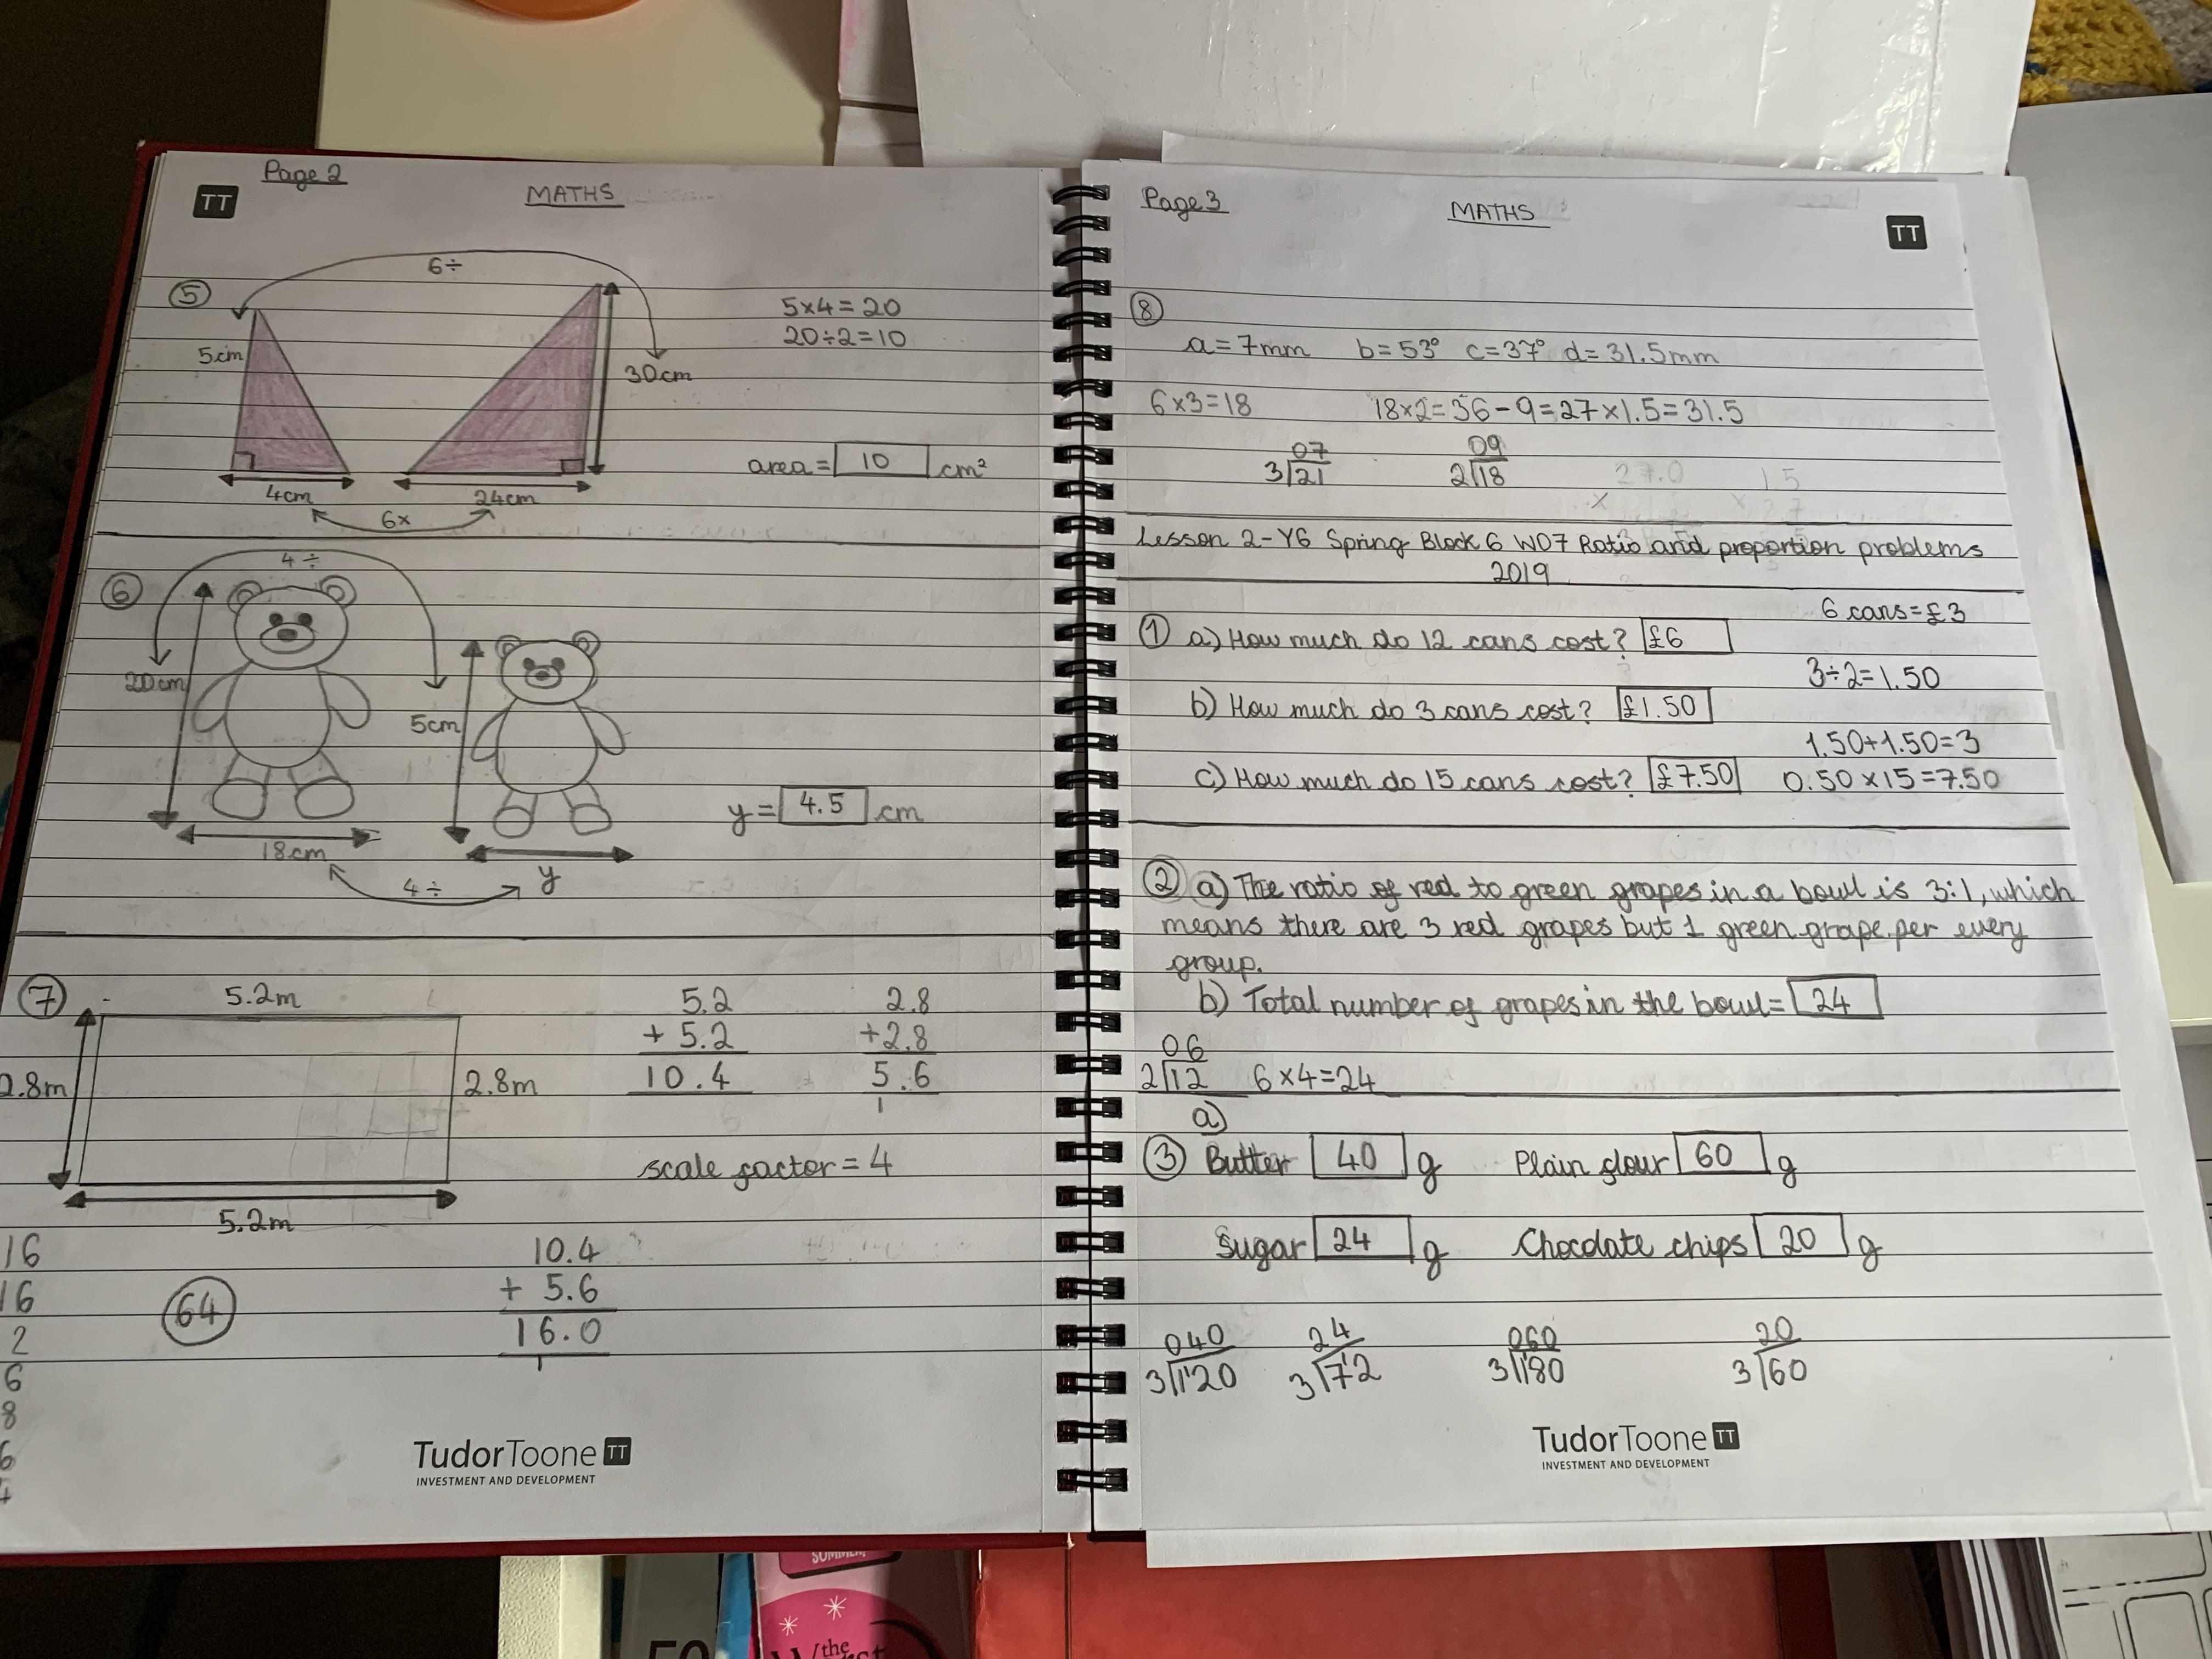 Page 2
TT
MATHS
6÷
5
5cm
4cm
30cm
24cm
6x
5x4=20
20÷2=10
area= 10 cm²
6
4÷
20cm
18cm
5cm
y
4÷
y= 4.5 cm
7
5.2m
2.8m
2.8m
5.2m
5.2
+ 5.2
10.4
2.8
+2.8
5.6
1
scale factor = 4
16
16
2
6
8
6
64
10.4
+ 5.6
16.0
1
TudorToone TT
INVESTMENT AND DEVELOPMENT
Page 3
MATHS
TT
8
a=7mm b=53° c=37° d=31.5mm
6x3=18 18x2=36-9=27x1.5=31.5
07
3 21
09
2 18
27.0
x
1.5
x 27
Lesson 2-Y6 Spring Block 6 WO7 Ratio and proportion problems
2019
6 cans=£3
1 a) How much do 12 cans cost? £6
3÷2=1.50
b) How much do 3 cans cost? £1.50
1.50+1.50=3
c) How much do 15 cans cost? £7.50 0.50x15=7.50
2 a) The ratio of red to green grapes in a bowl is 3:1, which
means there are 3 red grapes but 1 green grape per every
group.
b) Total number of grapes in the bowl= 24
06
2 12 6x4=24
a)
3 Butter 40 g Plain flour 60 g
Sugar 24 g Chocolate chips 20 g
040
3 120
24
3 72
060
3 180
20
3 60
TudorToone TT
INVESTMENT AND DEVELOPMENT
SUMMER
the